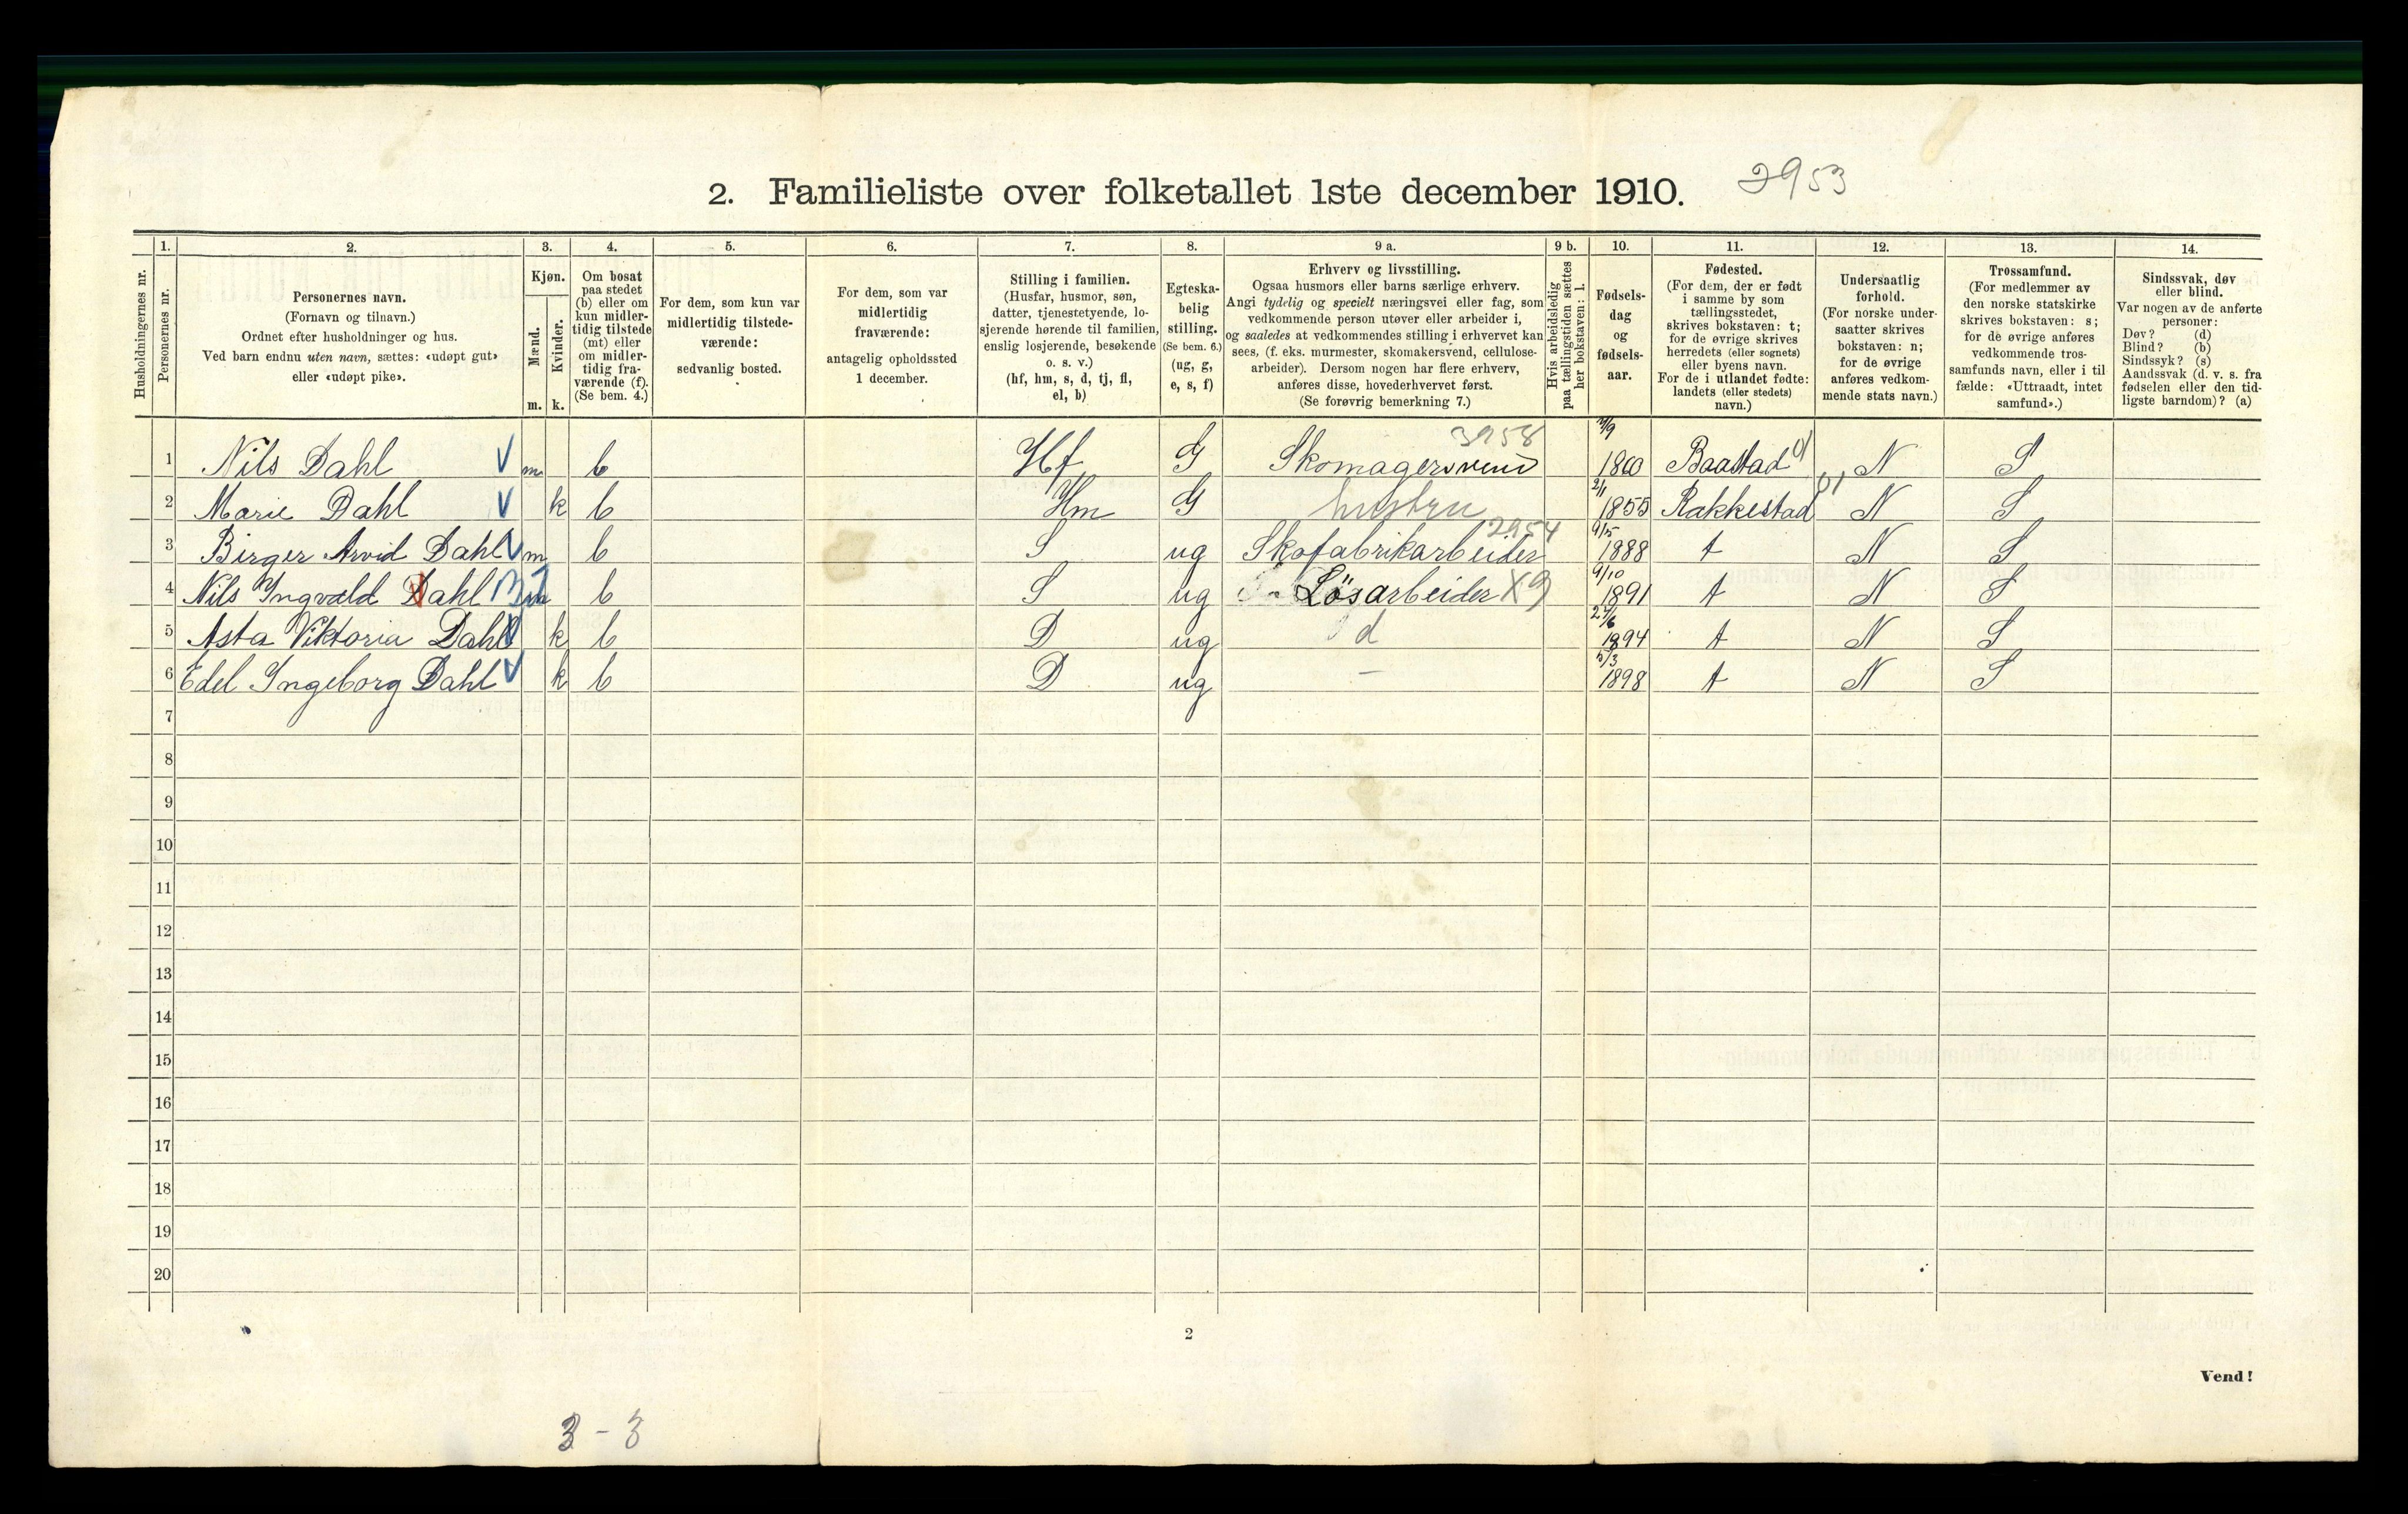 2. Familieliste over folketallet 1ste december 1910. 2953
Husholdningernes nr.
1. Personernes nr.
2. Personernes navn.
(Fornavn og tilnavn.)
Ordnet efter husholdninger og hus.
Ved barn endnu uten navn, sættes: «udøpt gut»
eller «udøpt pike».
3. Kjøn.
Mænd. m.
Kvinder. k.
4. Om bosat
paa stedet
(b) eller om
kun midler-
tidig tilstede
(mt) eller
om midler-
tidig fra-
værende (f).
(Se bem. 4.)
5. For dem, som kun var
midlertidig tilstede-
værende:
sedvanlig bosted.
6. For dem, som var
midlertidig
fraværende:
antagelig opholdssted
1 december.
7. Stilling i familien.
(Husfar, husmor, søn,
datter, tjenestetyende, lo-
sjerende hørende til familien,
enslig losjerende, besøkende
o. s. v.)
(hf, hm, s, d, tj, fl,
el, b)
8. Egteska-
belig
stilling.
(Se bem. 6.)
(ug, g,
e, s, f)
9 a. Erhverv og livsstilling.
Ogsaa husmors eller barns særlige erhverv.
Angi tydelig og specielt næringsvei eller fag, som
vedkommende person utøver eller arbeider i,
og saaledes at vedkommendes stilling i erhvervet kan
sees, (f. eks. murmester, skomakersvend, cellulose-
arbeider). Dersom nogen har flere erhverv,
anføres disse, hovederhvervet først.
(Se forøvrig bemerkning 7.)
9 b. Hvis arbeidsledig
paa tællingstiden sættes
her bokstaven: l.
10. Fødsels-
dag
og
fødsels-
aar.
11. Fødested.
(For dem, der er født
i samme by som
tællingsstedet,
skrives bokstaven: t;
for de øvrige skrives
herredets (eller sognets)
eller byens navn.
For de i utlandet fødte:
landets (eller stedets)
navn.)
12. Undersaatlig
forhold.
(For norske under-
saatter skrives
bokstaven: n;
for de øvrige
anføres vedkom-
mende stats navn.)
13. Trossamfund.
(For medlemmer av
den norske statskirke
skrives bokstaven: s;
for de øvrige anføres
vedkommende tros-
samfunds navn, eller i til
fælde: «Uttraadt, intet
samfund».)
14. Sindssvak, døv
eller blind.
Var nogen av de anførte
personer:
Døv? (d)
Blind? (b)
Sindssyk? (s)
Aandssvak (d. v. s. fra
fødselen eller den tid-
ligste barndom)? (a)
1 Nils Dahl m b Hf G Skomagersvend 1860 Baastad N S
2 Marie Dahl k b Hm G hustru 2/1 1855 Rakkestad 01 N S
3 Birger Arvid Dahl m b S ug Skofabrikarbeider 2954 9/5 1888 t N S
4 Nils Ingvald Dahl m b S ug Løsarbeider X9 9/10 1891 t N S
5 Asta Viktoria Dahl k b D ug d 27/6 1894 t N S
6 Edel Ingeborg Dahl k b D ug – 5/3 1898 t N S
7
8
9
10
11
12
13
14
15
16
17
18
19
20
2
Vend!
3 - 3